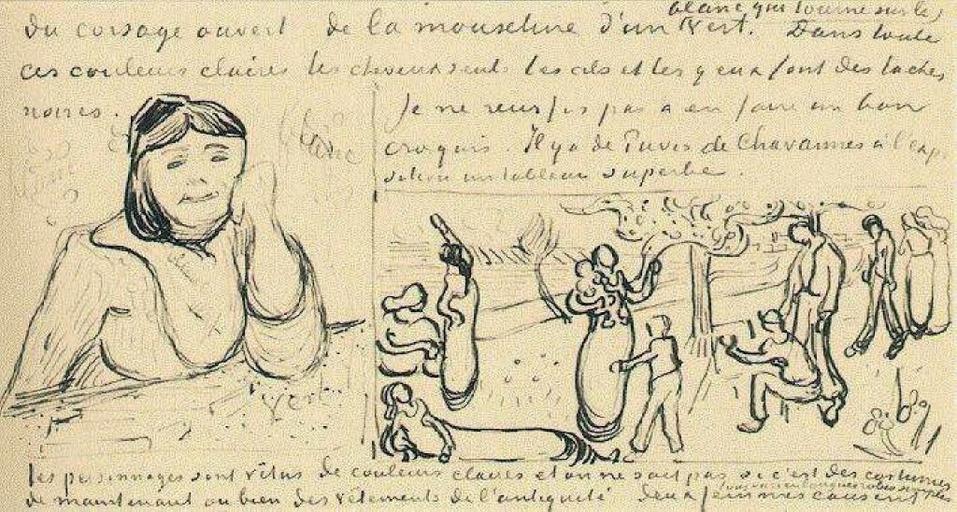 blanc qui tourne sur le
du corsage ouvert de la mousseline d'un vert. Dans toute
ces couleurs claires les cheveux seul. les cils et les yeux font des taches
noires.
Je ne reussis pas a en faire un bon
croquis. Il y a de Puvis de Chavannes à l'expo
sition un tableau superbe.
blanc
vert
les personnages sont vêtus de couleurs claires et on ne sait pas si c'est des costumes
de maintenant ou bien des vêtements de l'antiquité deux femmes causent